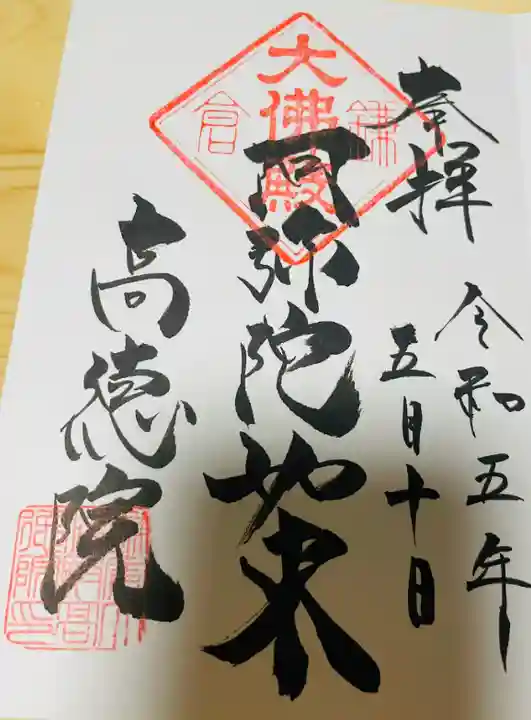 奉拝
令和五年
五月十日
大佛殿
鎌
倉
阿弥陀如来
高徳院